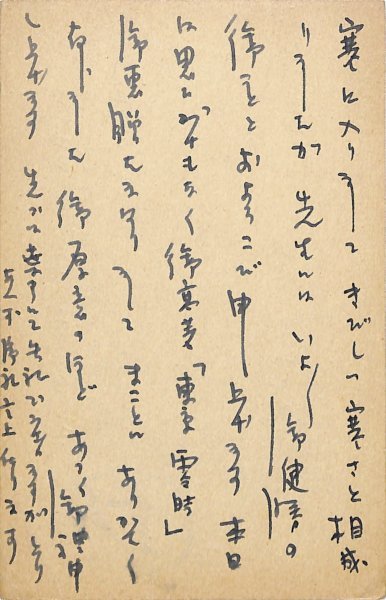 寒に入りましてきびしい寒さと相成
りましたが 先生にはいよ〳〵御健勝の
御こととおよろこび申し上げます 本日
は思ひがけもなく御高著「東京零時」
御恵贈たまはりましてまことにありがたく
存じました 御厚意のほどあつく御礼申
し上げます 先づは乍失礼
御礼言上仕ります